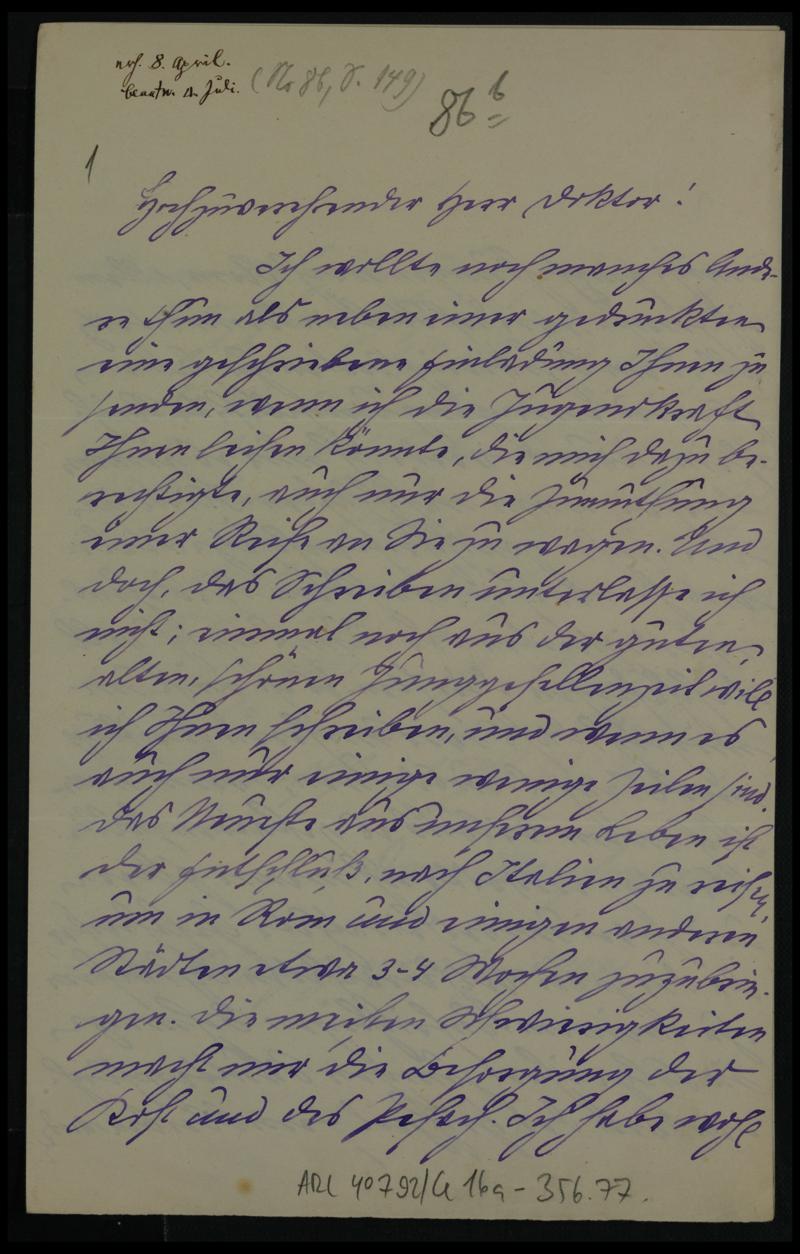 erh. 8. April.
beantw. 4. Juli.
(No 86, S. 149)
86 b
1
Hochzuverehrender Herr Doktor!
Ich wollte noch manches Ande-
re thun als neben einer gedruckten
eine geschriebene Einladung Ihnen zu
senden, wenn ich die Jugendkraft
Ihnen leihen könnte, die mich dazu be-
rechtigte, auch nur die Zumuthung
einer Reise an Sie zu wagen. Und
doch, das Schreiben unterlasse ich
nicht; einmal noch aus der guten,
alten, schönen Junggesellenzeit will
ich Ihnen schreiben, und wenn es
auch nur einige wenige Zeilen sind.
Das Neueste aus unserem Leben ist
der Entschluß, nach Italien zu reisen,
um in Rom und einigen anderen
Städten etwa 3-4 Wochen zuzubrin-
gen. Die meisten Schwierigkeiten
macht mir die Besorgung der
Kost und des Peßach. Ich habe wohl
ARC 40792/C 16a-356.77.